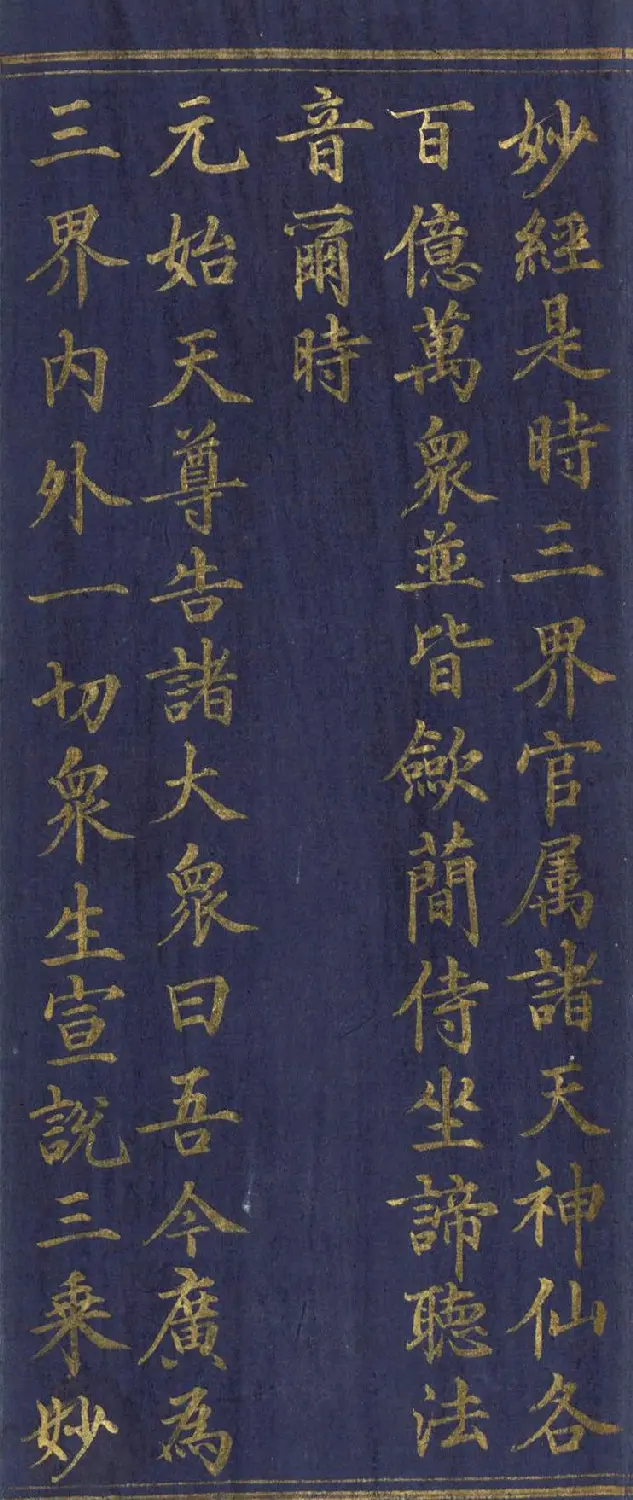 妙經是時三界官属諸天神仙各
百億萬衆並皆歛蕳侍坐諦聽法
音爾時
元始天尊告諸大衆曰吾今廣為
三界内外一切衆生宣說三乗妙